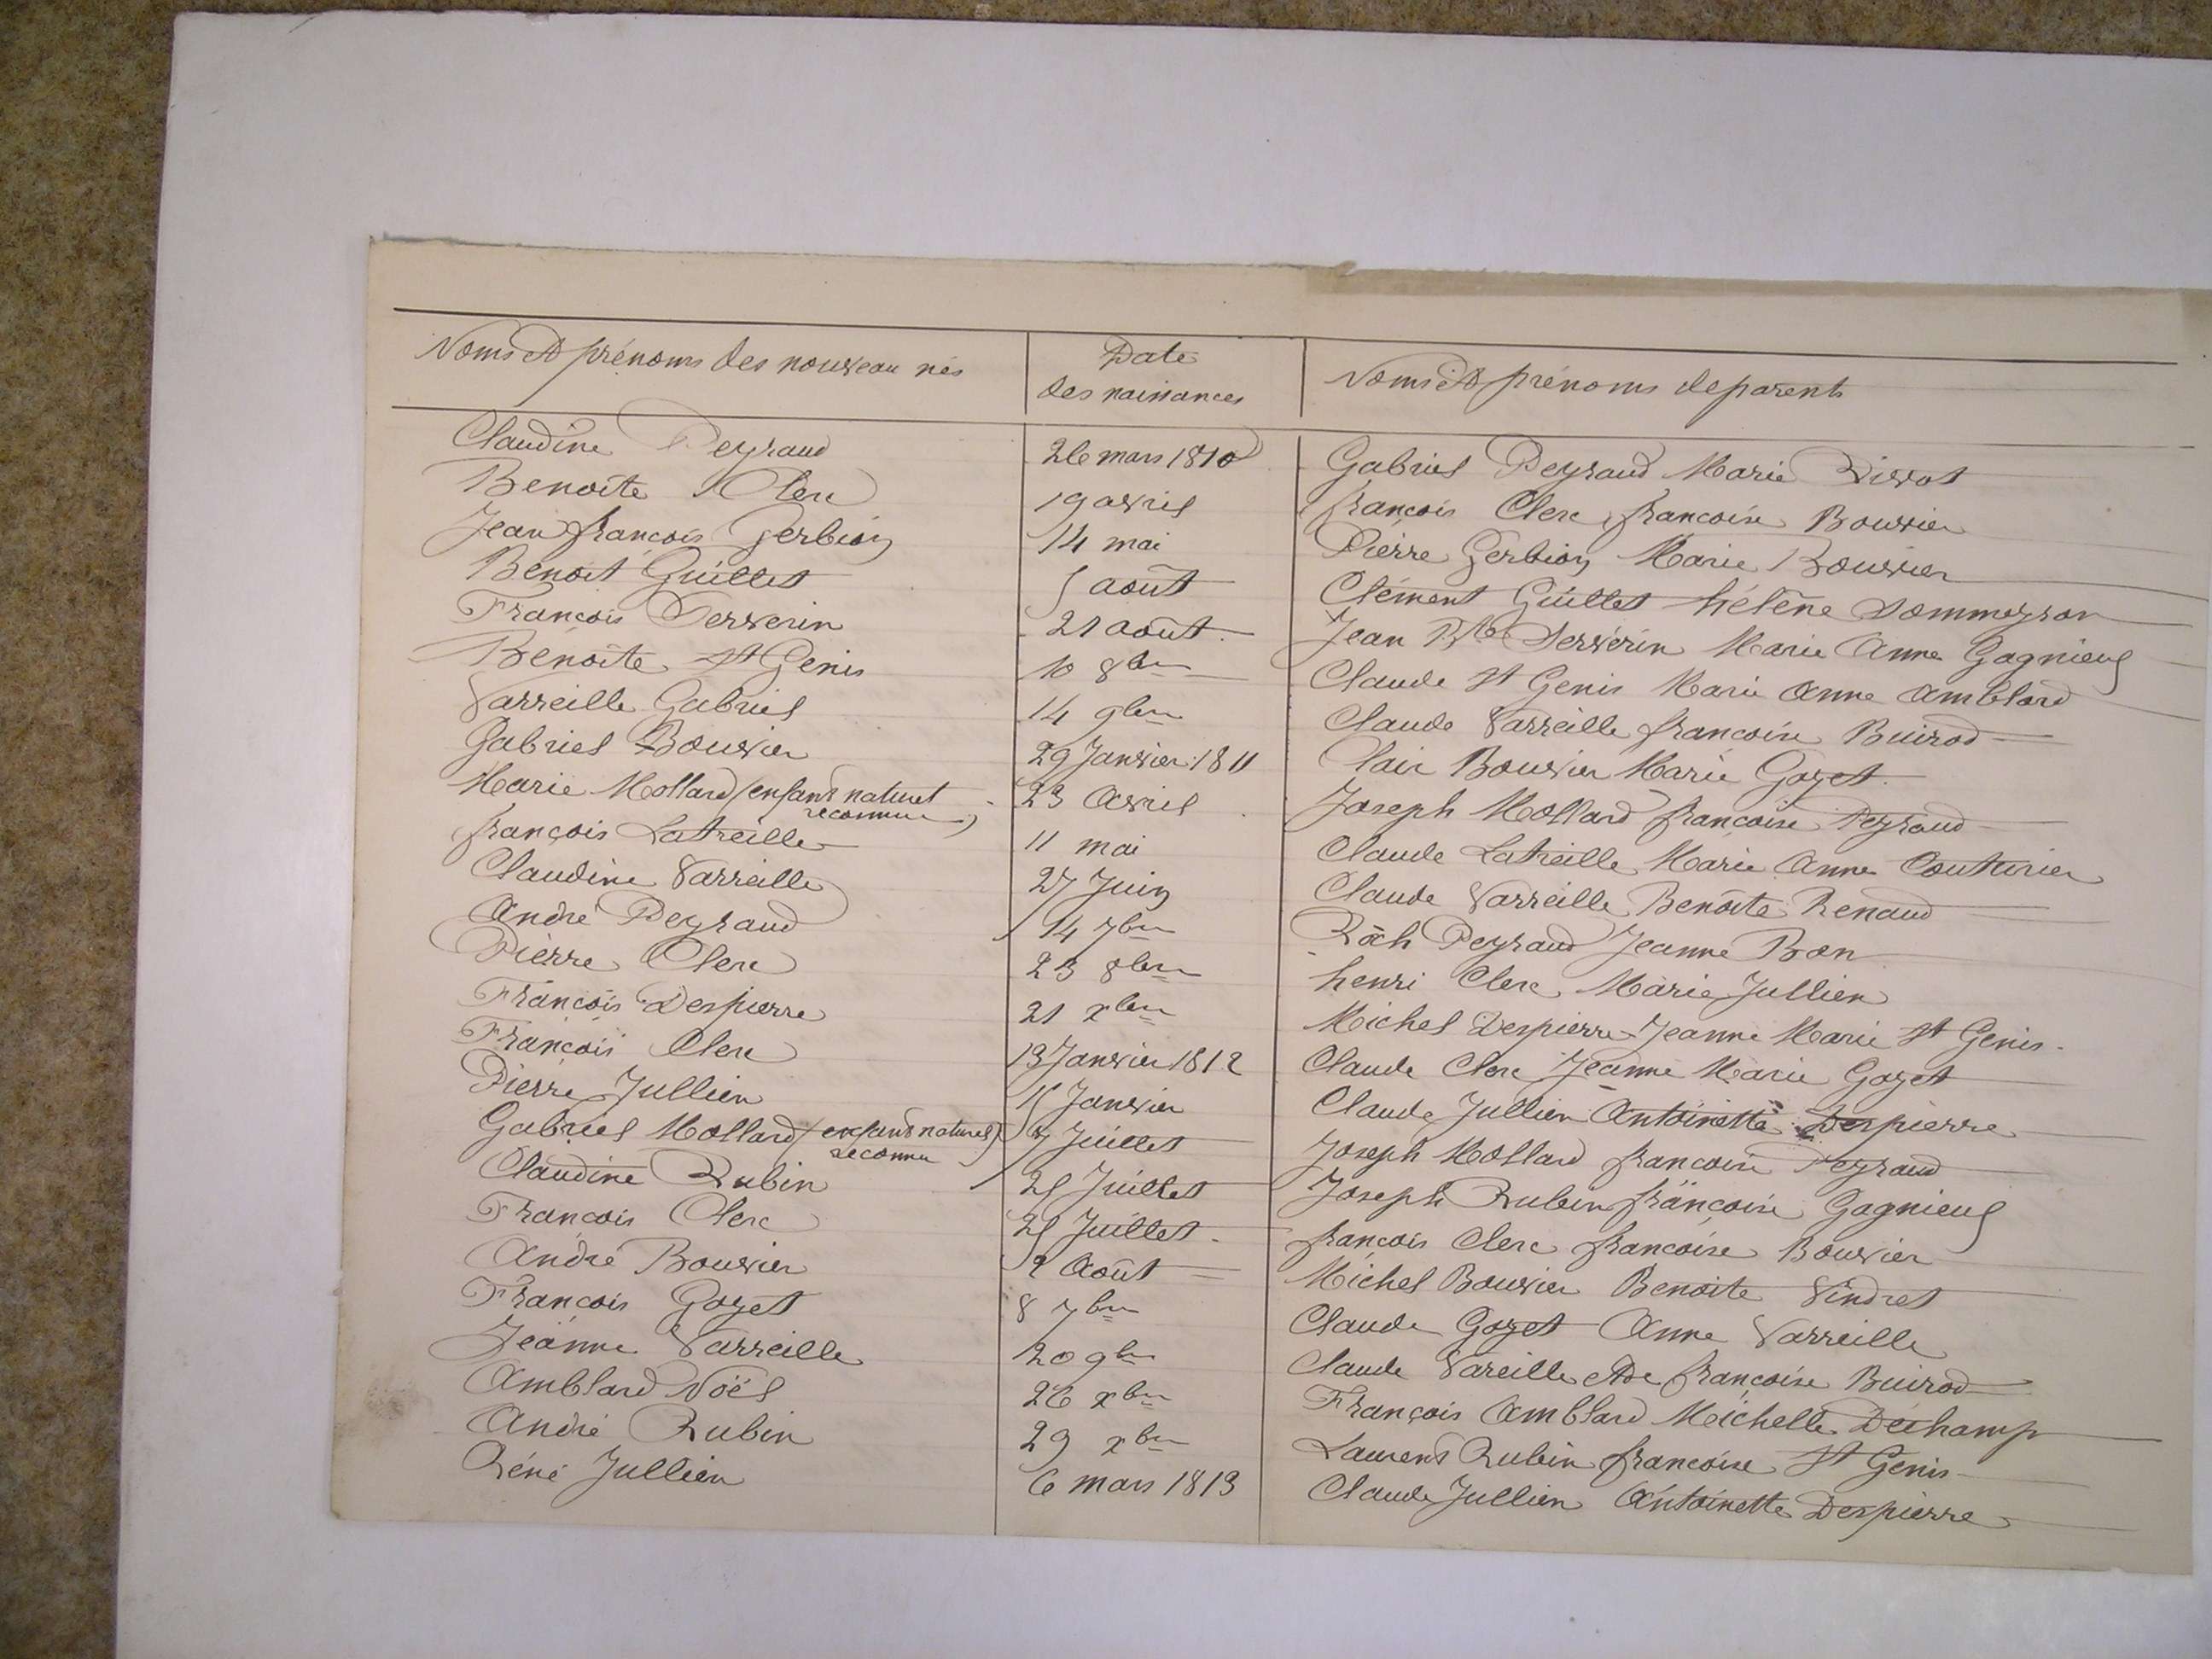 Noms et prénoms des nouveau nés | Date des naissances | Noms et prénoms de parents
Claudine Peyraud | 26 mars 1810 | Gabriel Peyraud Marie Rivvot
Benoîte Clerc | 19 avril | françois Clerc françoise Bouvier
Jean françois Gerbion | 14 mai | Pierre Gerbion Marie Bouvier
Benoit Guillet | 5 août | Clément Guillet hélène Dommeyron
François Serverin | 21 août | Jean Bte Serverin Marie Anne Gagnieux
Benoîte St Genis | 10 8bre | Claude St Genis Marie Anne Amblard
Varreille Gabriel | 14 9bre | Claude Varreille françoise Buirod
Gabriel Bouvier | 29 Janvier 1811 | Clair Bouvier Marie Goyet
Marie Mollard (enfant naturel reconnue) | 23 Avril | Joseph Mollard françoise Peyraud
françois Latreille | 11 mai | Claude Latreille Marie Anne Couturier
Claudine Varreille | 27 Juin | Claude Varreille Benoîte Renaud
André Peyraud | 14 7bre | Roch Peyraud Jeanne Bon
Pierre Clerc | 23 8bre | henri Clerc Marie Jullien
François Despierre | 21 xbre | Michel Despierre Jeanne Marie St Genis
François Clerc | 13 Janvier 1812 | Claude Clerc Jeanne Marie Goyet
Pierre Jullien | 15 Janvier | Claude Jullien Antoinette Despierre
Gabriel Mollard (enfant naturel reconnu) | 7 Juillet | Joseph Mollard françoise Peyraud
Claudine Rubin | 25 Juillet | Joseph Rubin françoise Gagnieux
François Clerc | 25 Juillet | françois Clerc françoise Bouvier
André Bouvier | 2 Août | Michel Bouvier Benoite Vindret
François Goyet | 8 7bre | Claude Goyet Anne Varreille
Jeanne Varreille | 20 9bre | Claude Vareille et de françoise Buirod
Amblard Noël | 26 xbre | François Amblard Michelle Dechamp
André Rubin | 29 xbre | Laurent Rubin françoise St Genis
Réné Jullien | 6 mars 1813 | Claude Jullien Antoinette Despierre